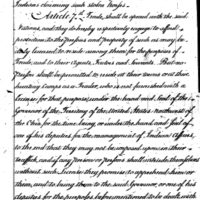 Indians claiming such stolen Horses.
Article 7. Trade shall be opened with the said
Nations, and they do hereby respectively engage to afford
protection to the persons and property of such as may be
duly licensed to reside among them for the purposes of
Trade, and to their Agents, Factors and Servants. But no
Person shall be permitted to reside at their towns or their
hunting Camps as a Trader, who is not furnished with a
License for that purpose, under the hand and Seal of the
Governor of the Territory of the United States Northwest of
the Ohio for the time being, or under the hand and Seal of
one of his deputies for the management of Indian Affairs,
to the end that they may not be imposed upon in their
traffick, and if any Person or Persons shall intrude themselves
without such License, they promise to apprehend him or
them, and to bring them to the said Governor, or one of his
deputies for the purpose before mentioned, to be dealt with